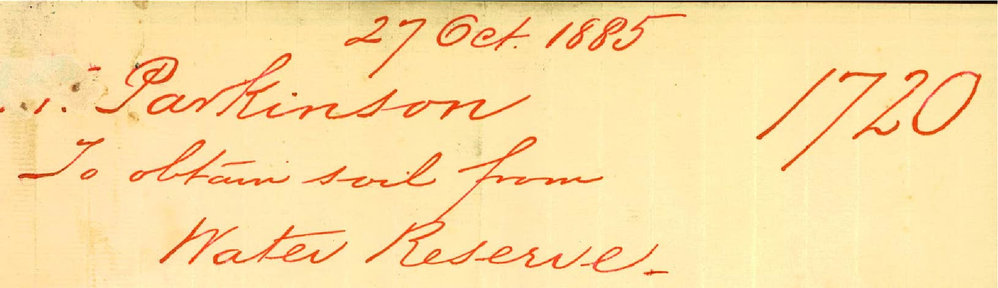 27 Oct. 1885
Parkinson 1720
To obtain soil from
Water Reserve -